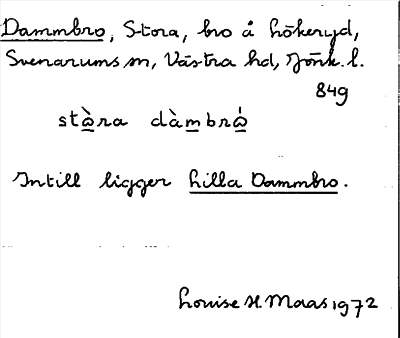 Dammbro, Stora, bro å Hökeryd,
Svenarums sn, Västra hd, Jönk. l.
849
stò̠ra dàm̠brώ̠
Intill ligger Lilla Dammbro.
Louise H. Maas 1972